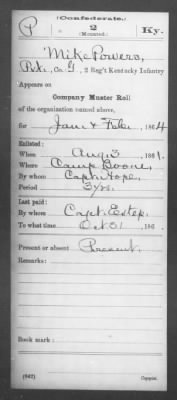 (Confederate.)
P 2 Ky.
(Mounted.)
Mike Powers,
Pvt., Co. G, 2 Reg't Kentucky Infantry
Appears on
Company Muster Roll
of the organization named above,
for Jan & Feb, 1864
Enlisted:
When Aug 3, 1861.
Where Camp Boone,
By whom Capt. Hope,
Period 3 yrs.
Last paid:
By whom Capt. Estep,
To what time Oct 31, 186 .
Present or absent Present.
Remarks:
Book mark:
(642) Copyist.